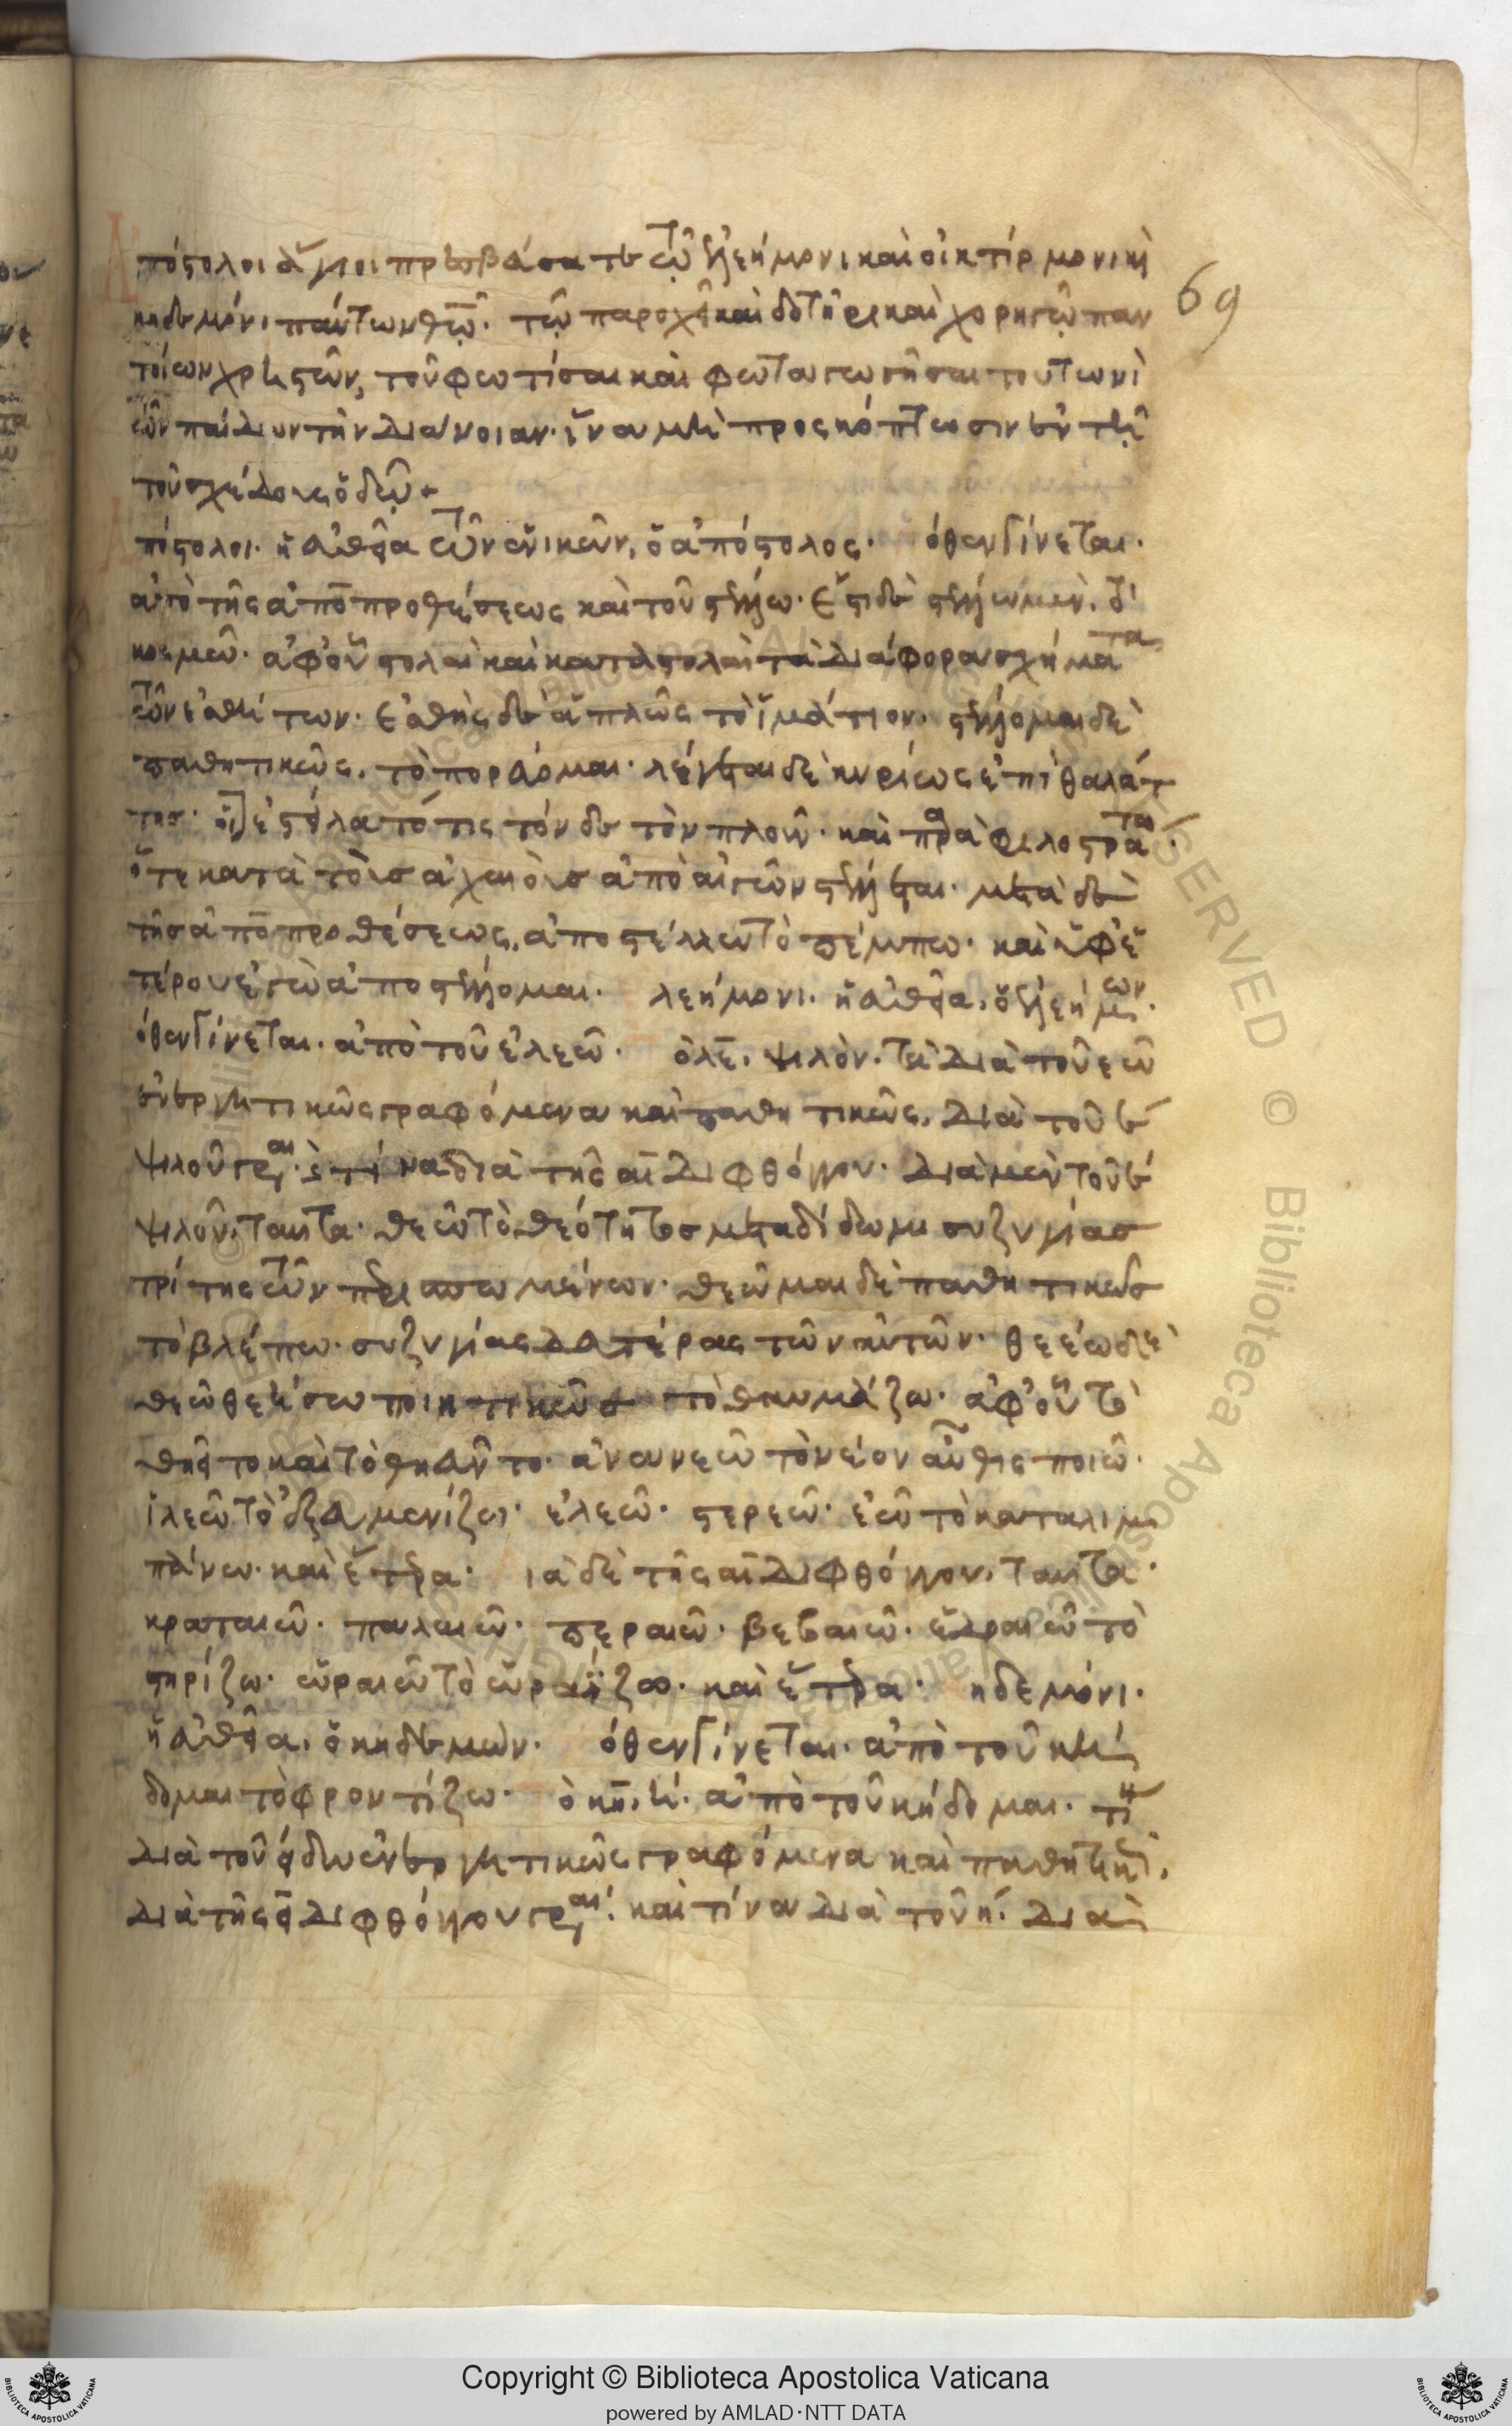 Ἀπόστολοι ἅγιοι πρεσβεύσατε τῷ ἐλεήμονι καὶ οἰκτίρμονι καὶ
κηδεμόνι πάντων θῶ. τῷ παροχεῖ καὶ δοτῆρι καὶ χορηγῷ παν
τοίων χρηστῶν, τοῦ φωτίσαι καὶ φωταγωγῆσαι τουτωνὶ
τῶν παίδων τὴν διάνοιαν. ἵνα μὴ προσκόπτωσιν ἐν τῇ
τοῦ σχέδους ὁδῷ
πόστολοι. ἡ εὐθεῖα τῶν ἑνικῶν, ὁ ἀπόστολος. ὅθεν γίνεται.
ἀπὸ τῆς ἀπὸ προθέσεως καὶ τοῦ στέλλω. ἔστι δὲ στέλλω μὲν, τὸ
κοσμῶ. ἀφ' οὗ στολαὶ καὶ καταστολαὶ τὰ διάφορα σχήματα
τῶν ἐσθήτων. ἐσθὴς δὲ ἁπλῶς τὸ ἱμάτιον. στέλλομαι δὲ
παθητικῶς, τὸ πορεύομαι. λέγεται δὲ κυρίως ἐπὶ θαλάτ
της. ἐστείλατό τις τόνδε τὸν πλοῦν. καὶ παρὰ φιλοστράτω.
ὅτε κατὰ τοὺς ἀχαιοὺς ἀπὸ αἰγῶν στέλλεται. μετὰ δὲ
τῆς ἀπὸ προθέσεως, ἀποστέλλω τὸ πέμπω. καὶ ὑφ' ἑ
τέρου ἐγὼ ἀποστέλλομαι. λεήμονι. ἡ εὐθεῖα, ὁ ἐλεήμων.
ὅθεν γίνεται. ἀπὸ τοῦ ἐλεῶ. ὁ λε, ψιλὸν. τὰ διὰ τοῦ εῶ
ἐνεργητικῶς γραφόμενα καὶ παθητικῶς, διὰ τοῦ ε
ψιλοῦ γράφεται. τινὰ διὰ τῆς αι διφθόγγου. διὰ μὲν τοῦ ε
ψιλοῦ, ταῦτα. θεῶ τὸ θεότητος μεταδίδωμι συζυγίας
τρίτης τῶν περισπωμένων. θεῶμαι δὲ παθητικῶς
τὸ βλέπω. συζυγίας δευτέρας τῶν αὐτῶν. θεέω δὲ
θεῶ θεήσω ποιητικῶς τὸ θαυμάζω. ἀφ' οὗ τὸ
θηεῖτο καὶ τὸ θηεῦντο. ἀνανεῶ τὸ νέον αὖθις ποιῶ.
ἱλεῶ τὸ εὐμενίζω. ἐλεῶ. στερεῶ. ἐῶ τὸ καταλιμ
πάνω. καὶ ἕτερα. ιὰ δὲ τῆς αι διφθόγγου, ταῦτα.
κραταιῶ. παλαιῶ. περαιῶ. βεβαιῶ. ἑδραιῶ τὸ
στηρίζω. ὡραιῶ τὸ ὡραΐζω. καὶ ἕτερα. ηδεμόνι.
ἡ εὐθεῖα, ὁ κηδεμών. ὅθεν γίνεται. ἀπὸ τοῦ κή
δομαι τὸ φροντίζω. ὁ κη, η. ἀπὸ τοῦ κήδομαι. τὶ
διὰ τοῦ είδω ἐνεργητικῶς γραφόμενα καὶ παθητικῶς,
διὰ τῆς ει διφθόγγου γράφεται. καὶ τίνα διὰ τοῦ η. διὰ
69
Copyright © Biblioteca Apostolica Vaticana
powered by AMLAD·NTT DATA